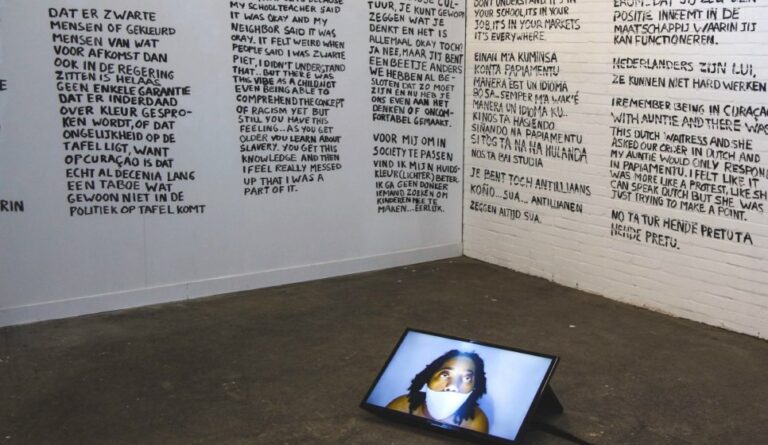 RIN
DAT ER ZWARTE
MENSEN OF GEKLEURD
MENSEN VAN WAT
VOOR AFKOMST DAN
OOK IN DE REGERING
ZITTEN IS HELAAS
GEEN ENKELE GARANTIE
DAT ER INDERDAAD
OVER KLEUR GESPRO-
KEN WORDT, OF DAT
ONGELIJKHEID OP DE
TAFEL LIGT, WANT
OP CURAÇAO IS DAT
ECHT AL DECENIA LANG
EEN TABOE WAT
GEWOON NIET IN DE
POLITIEK OP TAFEL KOMT
MY SCHOOLTEACHER SAID
IT WAS OKAY AND MY
NEIGHBOR SAID IT WAS
OKAY. IT FELT WEIRD WHEN
PEOPLE SAID I WAS ZWARTE
PIET, I DIDN'T UNDERSTAND
THAT... BUT THERE WAS
THIS VIBE AS A CHILD NOT
EVEN BEING ABLE TO
COMPREHEND THE CONCEPT
OF RACISM YET BUT
STILL YOU HAVE THIS
FEELING... AS YOU GET
OLDER YOU LEARN ABOUT
SLAVERY. YOU GET THIS
KNOWLEDGE AND THEN
I FEEL REALLY MESSED
UP THAT I WAS A
PART OF IT.
TUUR, JE KUNT GEWOON
ZEGGEN WAT JE
DENKT EN HET IS
ALLEMAAL OKAY TOCH?
JA NEE, MAAR JIJ BENT
EEN BEETJE ANDERS
WE HEBBEN AL BE-
SLOTEN DAT ZO MOET
ZIJN EN NU HEB JE
ONS EVEN AAN HET
DENKEN OF ONCOM-
FORTABEL GEMAAKT.
VOOR MIJ OM IN
SOCIETY TE PASSEN
VIND IK MIJN HUIDS-
KLEUR (LICHTER) BETER.
IK GA GEEN DONKER
IEMAND ZOEKEN OM
KINDEREN MEE TE
MAKEN... EERLIJK.
YOUR SCHOOL ITS IN YOUR
JOB IT'S IN YOUR MARKETS
IT'S EVERYWHERE.
EINAN M'A KUMINSA
KONTA PAPIAMENTU
MANERA EGT UN IDIOMA
BO SA... SEMPER M'A WAK'E
MANERA UN IDIOMA KU..
KI NOS TA HASIENDO
SIÑANDO NA PAPIAMENTU
SI TOG TA NA HULANDA
NOS TA BAI STUDIA
JE BENT TOCH ANTILLIAANS
KOÑO... SUA... ANTILIANEN
ZEGGEN ALTIJD SUA.
POSITIE INNEEMT IN DE
MAATSCHAPPIJ WAARIN JIJ
KAN FUNCTIONEREN.
NEDERLANDERS ZIJN LUI,
ZE KUNNEN NIET HARD WERKEN
I REMEMBER BEING IN CURAÇAO
WITH AUNTIE AND THERE WAS
THIS DUTCH WAITRESS AND SHE
ASKED OUR ORDER IN DUTCH AND
MY AUNTIE WOULD ONLY RESPOND
IN PAPIAMENTU. I FELT LIKE IT
WAS MORE LIKE A PROTEST. LIKE SHE
CAN SPEAK DUTCH BUT SHE WAS
JUST TRYING TO MAKE A POINT.
NO TA TUR HENDE PRETU TA
HENDE PRETU.